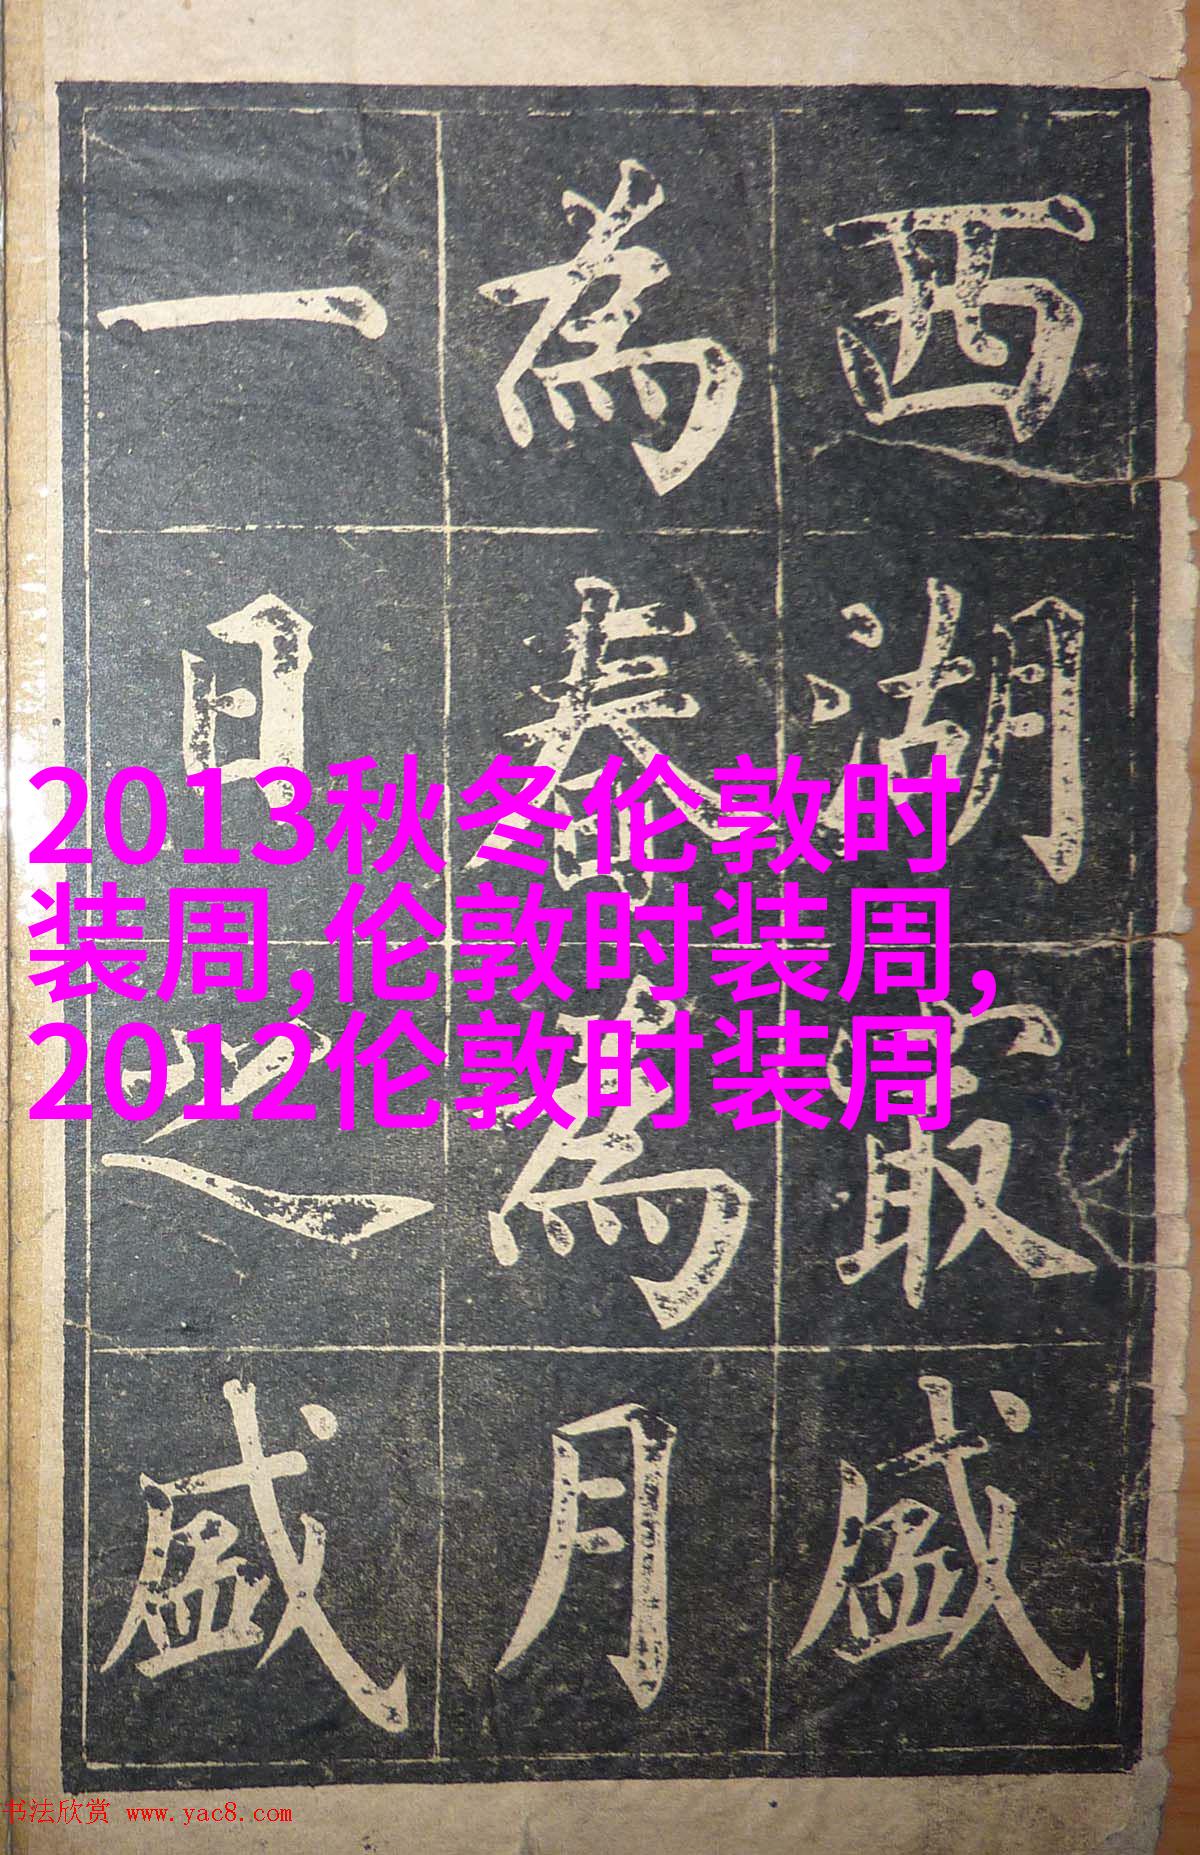 西湖最盛
為春為月
一日之盛
2013秋冬伦敦时
装周,伦敦时装周,
2012伦敦时装周
书法欣赏 www.yac8.com